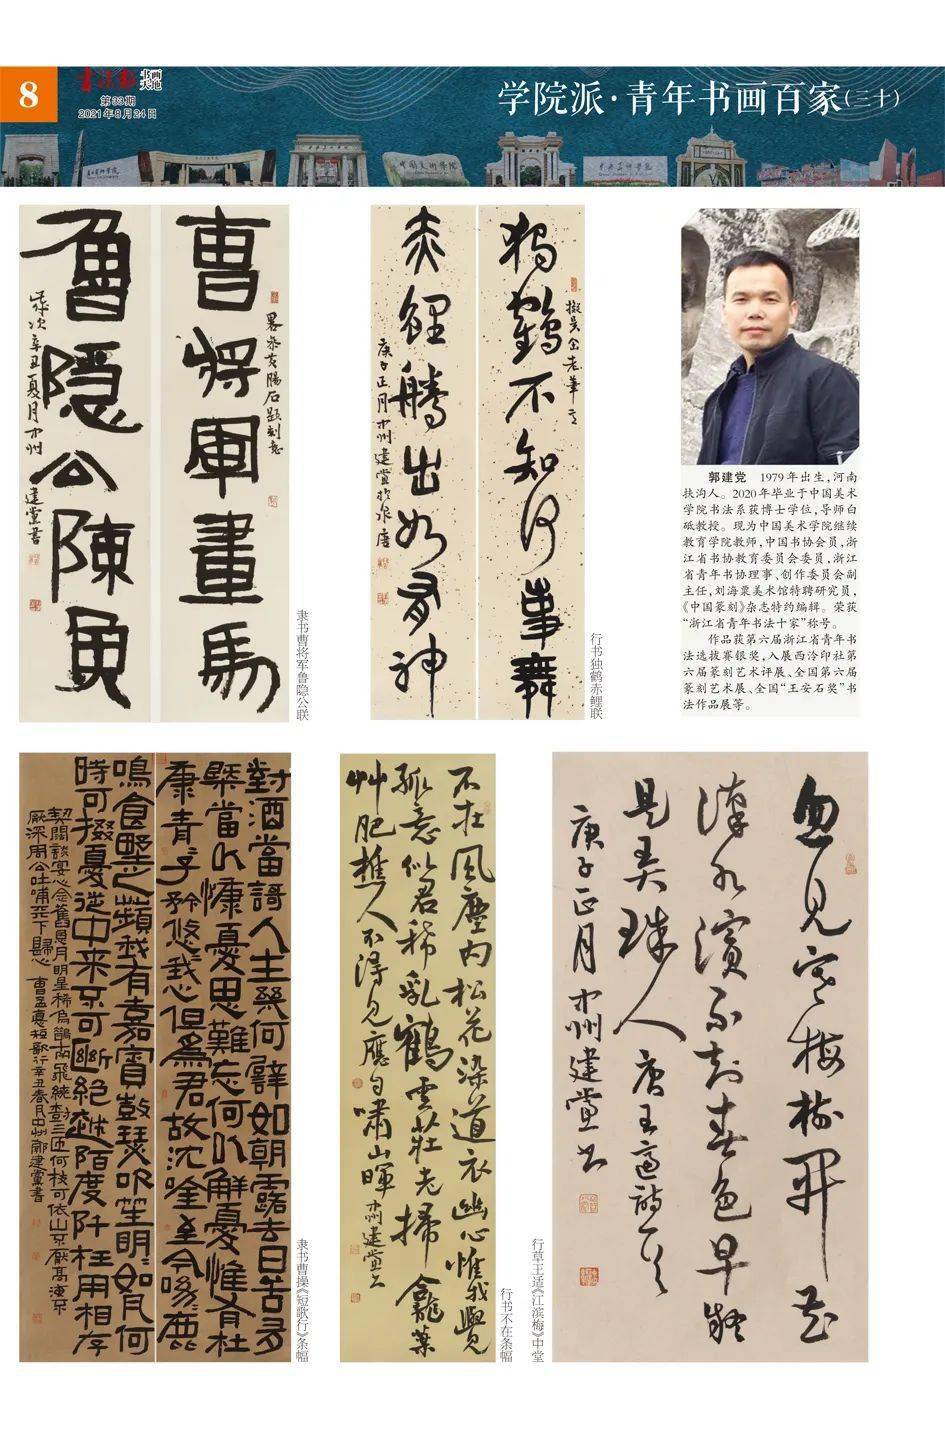 8
书法报 书画天地
第33期
2021年8月24日
学院派·青年书画百家(三十)
中国美术学院
中央美术学院
曹将軍畫馬
魯隐公陳魚
歲次辛丑夏月中州建堂書
隶书曹将军鲁隐公联
独鶴不知何事舞
赤鲤腾出如有神
庚子正月中州建党於泉唐
行书独鹤赤鲤联
郭建党　1979年出生,河南
扶沟人。2020年毕业于中国美术
学院书法系获博士学位,导师白
砥教授。现为中国美术学院继续
教育学院教师,中国书协会员,浙
江省书协教育委员会委员,浙江
省青年书协理事、创作委员会副
主任,刘海粟美术馆特聘研究员,
《中国篆刻》杂志特约编辑。荣获
“浙江省青年书法十家”称号。
作品获第六届浙江省青年书
法选拔赛银奖,入展西泠印社第
六届篆刻艺术评展、全国第六届
篆刻艺术展、全国“王安石奖”书
法作品展等。
對酒當歌人生幾何譬如朝露去日苦多
慨當以慷憂思難忘何以解憂惟有杜
康青青子衿悠悠我心但為君故沈吟至今呦呦鹿
鳴食野之蘋我有嘉賓鼓瑟吹笙明明如月何
時可掇憂從中来不可斷絶越陌度阡枉用相存
契闊談宴心念舊恩月明星稀烏鵲南飛繞樹三匝何枝可依山不厭高海不
厭深周公吐哺天下歸心 曹孟德短歌行辛丑春月中州郭建黨書
隶书曹操《短歌行》条幅
不在風塵内松花染道衣幽心惟我覺
孤意似君稀乳鶴雲莊老掃龕葉
艸肥樵人不得見應自嘯山暉 中州建党书
行书不在条幅
忽見寒梅樹開花
漢水濱不知春色早疑
是弄珠人 唐王適詩一首
庚子正月中州建党书
行草王适《江滨梅》中堂